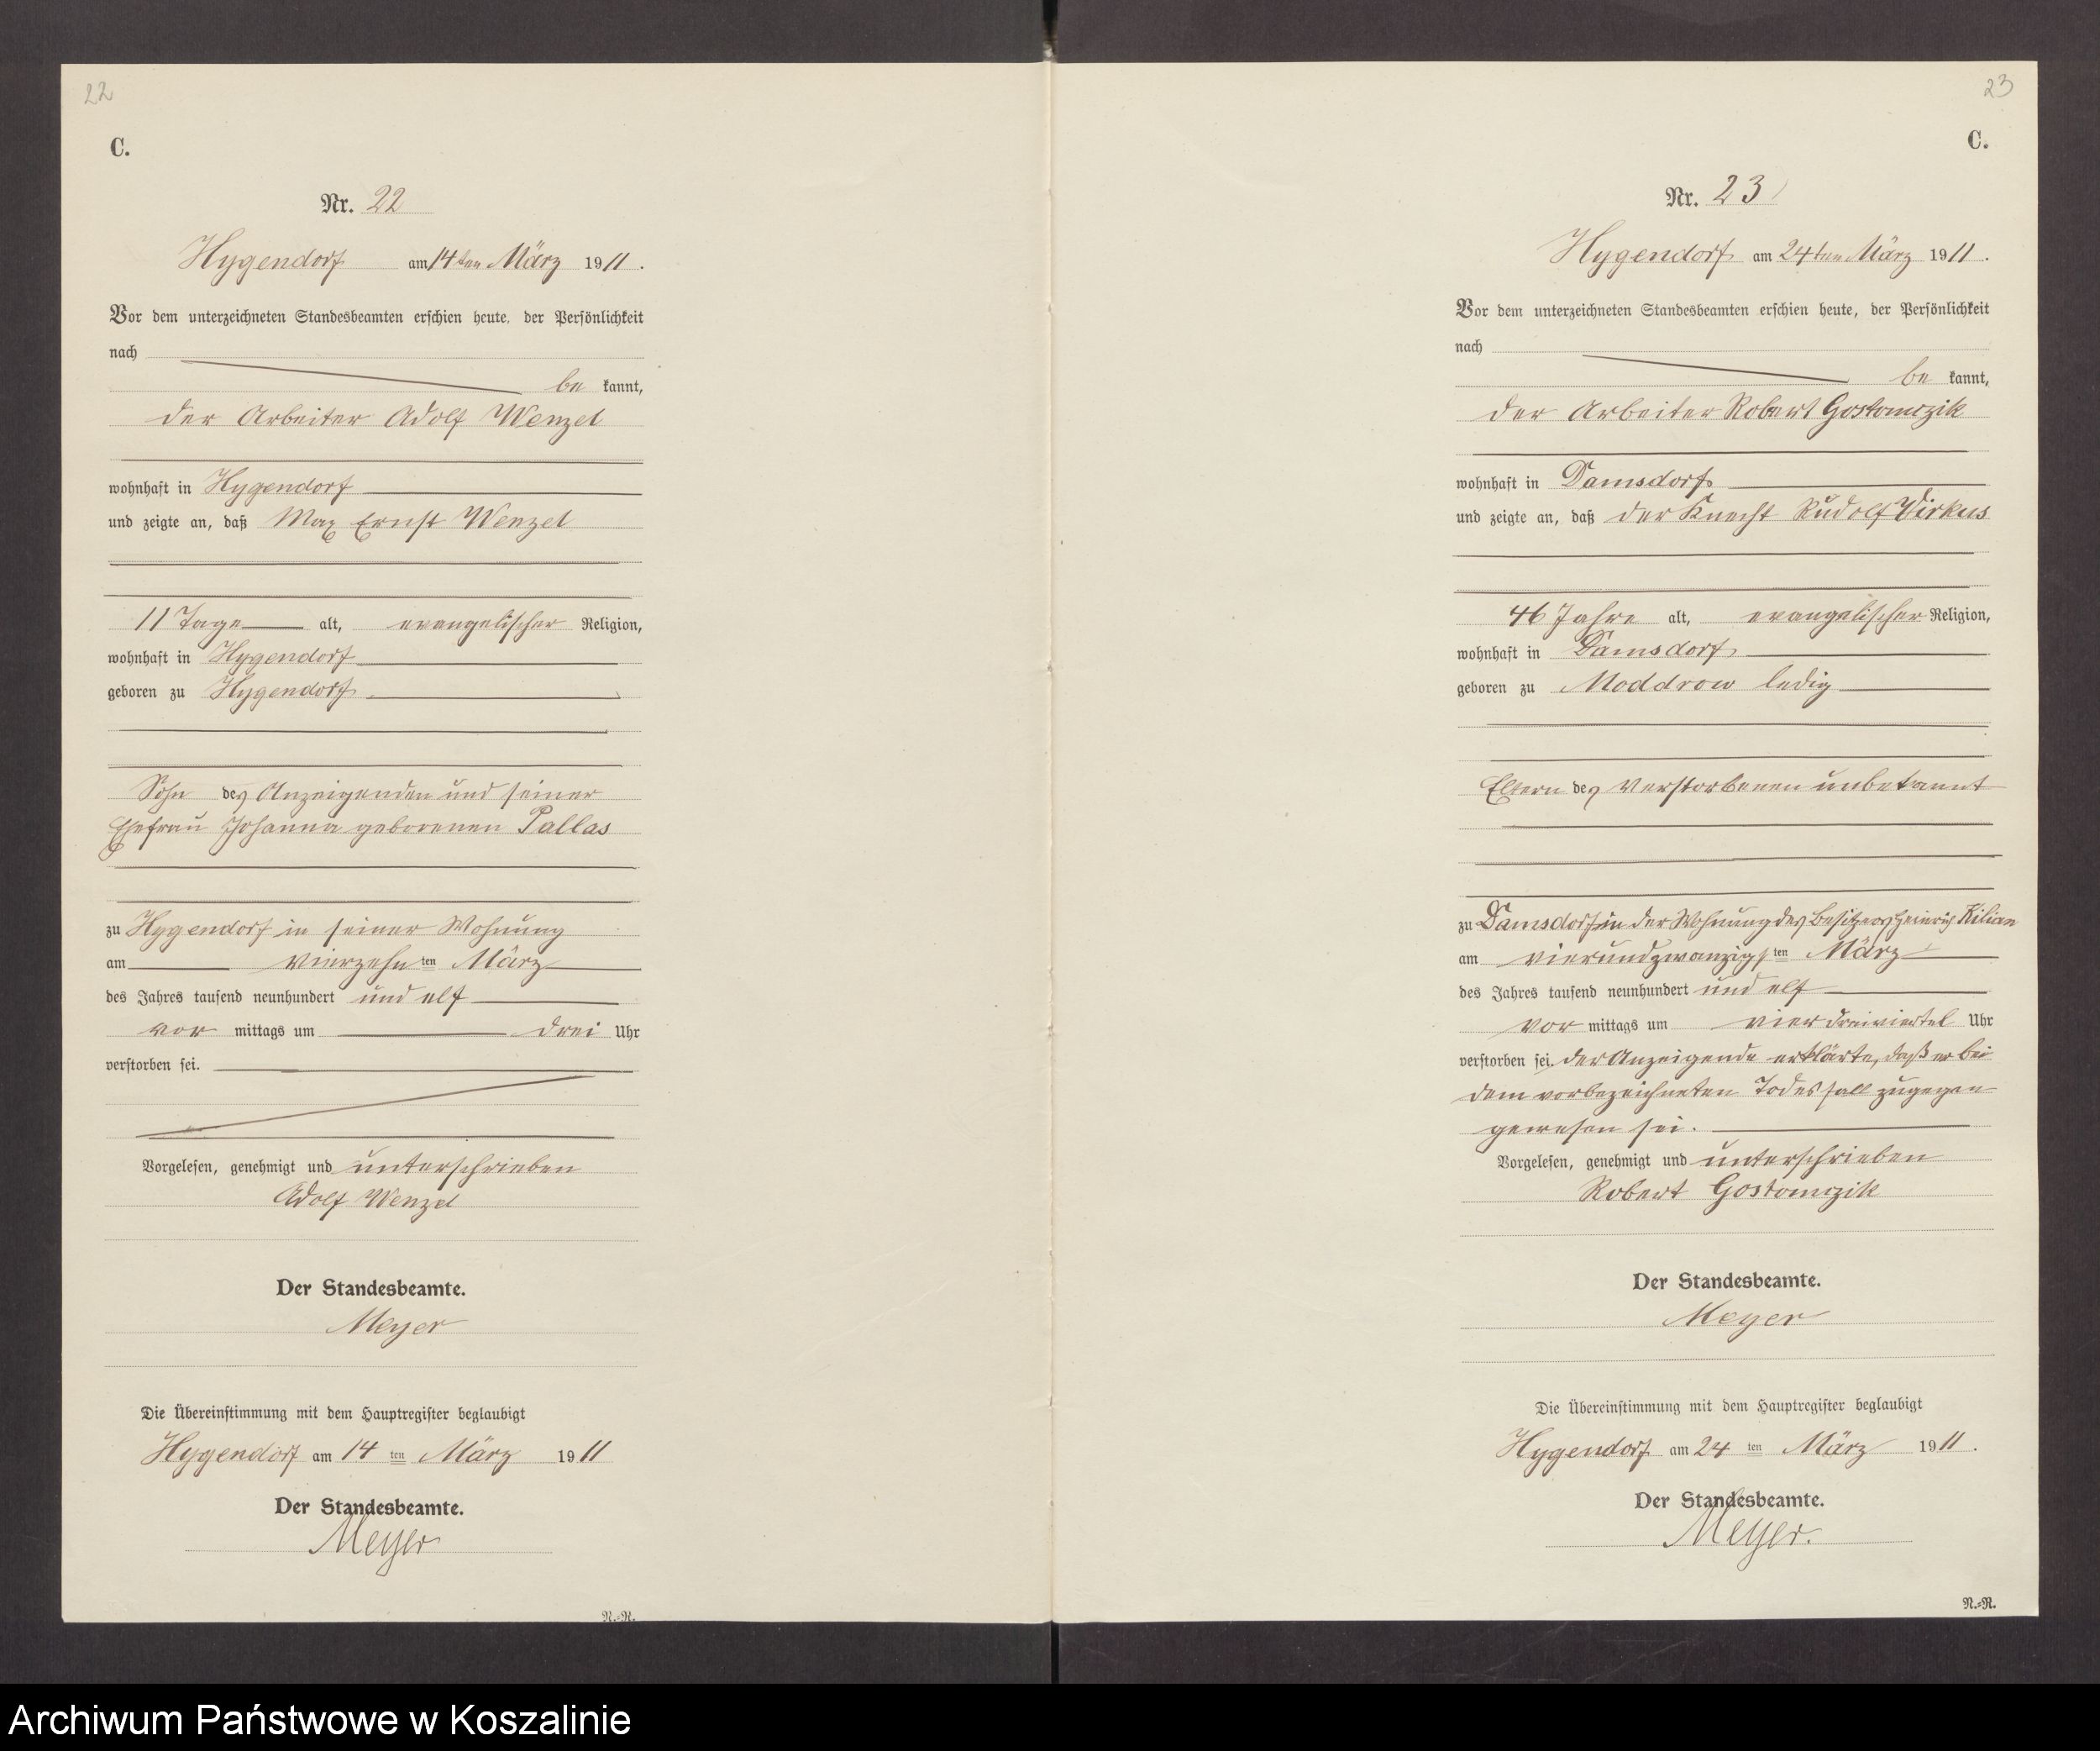 22
C.
Nr. 22
Hygendorf am 14ten März 1911.
Vor dem unterzeichneten Standesbeamten erschien heute, der Persönlichkeit
nach
be kannt,
der Arbeiter Adolf Wenzel
wohnhaft in Hygendorf
und zeigte an, daß Max Ernst Wenzel
11 Tage alt, evangelischer Religion,
wohnhaft in Hygendorf
geboren zu Hygendorf
Sohn des Anzeigenden und seiner
Ehefrau Johanna geborenen Pallas
zu Hygendorf in seiner Wohnung
am vierzehnten März
des Jahres tausend neunhundert und elf
vor mittags um drei Uhr
verstorben sei.
Vorgelesen, genehmigt und unterschrieben
Adolf Wenzel
Der Standesbeamte.
Meyer
Die Übereinstimmung mit dem Hauptregister beglaubigt
Hygendorf am 14 ten März 1911
Der Standesbeamte.
Meyer
N.=N.
23
C.
Nr. 23
Hygendorf am 24ten März 1911.
Vor dem unterzeichneten Standesbeamten erschien heute, der Persönlichkeit
nach
be kannt,
der Arbeiter Robert Gostomczik
wohnhaft in Damsdorf
und zeigte an, daß der Knecht Rudolf Virkus
46 Jahre alt, evangelischer Religion,
wohnhaft in Damsdorf
geboren zu Moddrow ledig
Eltern des Verstorbenen unbekannt
zu Damsdorf in der Wohnung des Besitzers Heinrich Kilian
am vierundzwanzigsten März
des Jahres tausend neunhundert und elf
vor mittags um vier dreiviertel Uhr
verstorben sei. der Anzeigende erklärte, daß er bei
dem vorbezeichneten Todesfall zugegen
gewesen sei.
Vorgelesen, genehmigt und unterschrieben
Robert Gostomczik
Der Standesbeamte.
Meyer
Die Übereinstimmung mit dem Hauptregister beglaubigt
Hygendorf am 24 ten März 1911.
Der Standesbeamte.
Meyer.
N.=N.
Archiwum Państwowe w Koszalinie